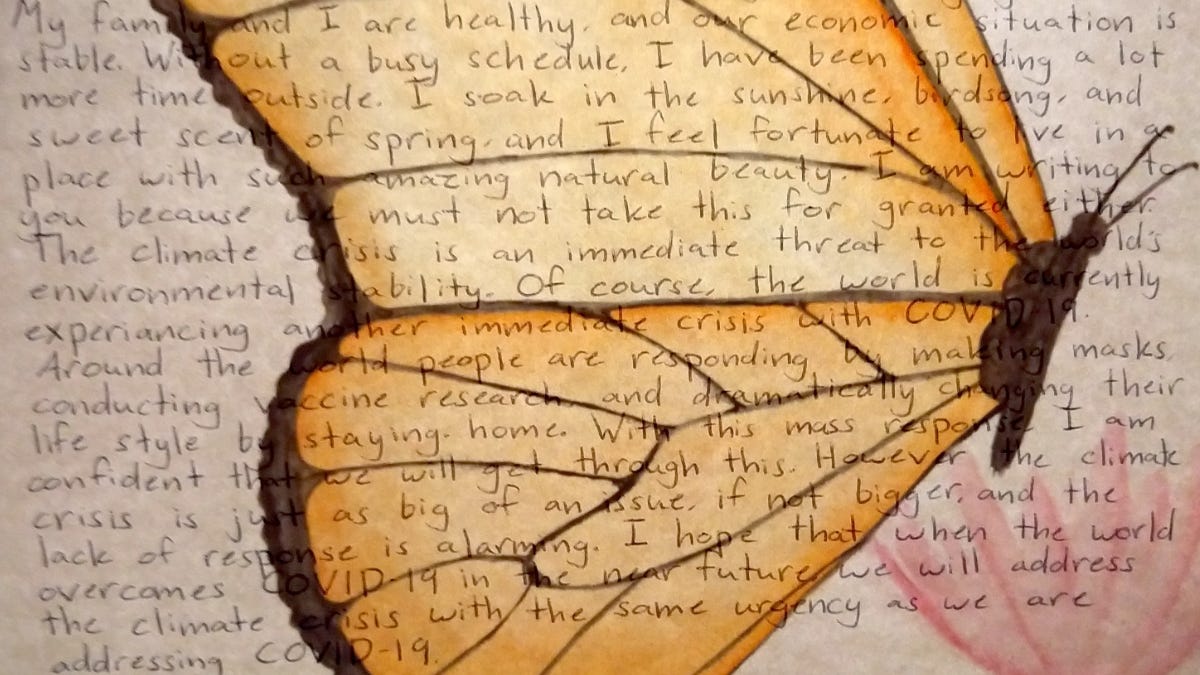 My family and I are healthy, and our economic situation is
stable. Without a busy schedule, I have been spending a lot
more time outside. I soak in the sunshine, birdsong, and
sweet scent of spring, and I feel fortunate to live in a
place with such amazing natural beauty. I am writing to
you because we must not take this for granted either.
The climate crisis is an immediate threat to the world's
environmental stability. Of course, the world is currently
experiancing another immediate crisis with COVID-19.
Around the world people are responding by making masks,
conducting vaccine research, and dramatically changing their
life style by staying home. With this mass response I am
confident that we will get through this. However the climate
crisis is just as big of an issue, if not bigger, and the
lack of response is alarming. I hope that when the world
overcomes COVID-19 in the near future, we will address
the climate crisis with the same urgency as we are
addressing COVID-19.